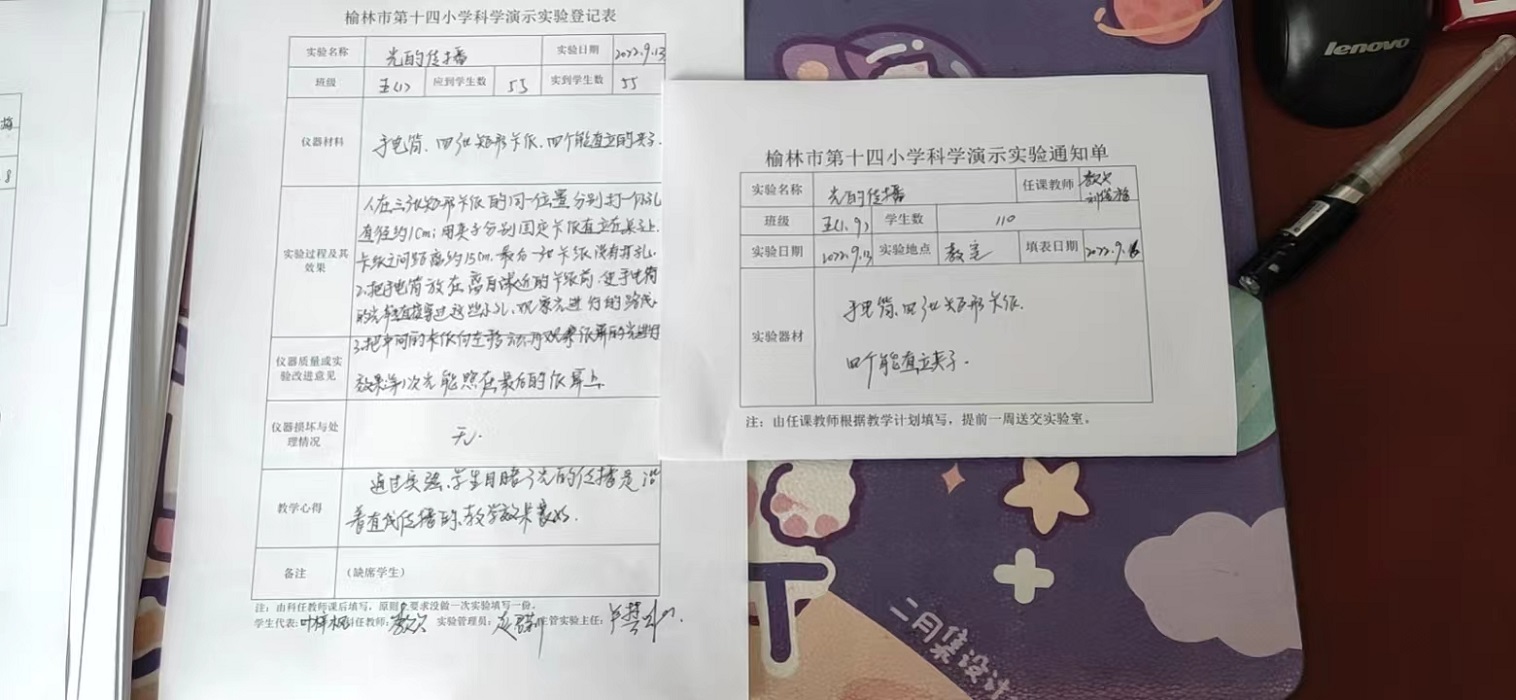 榆林市第十四小学科学演示实验登记表
实验名称 光的传播 实验日期 2022.9.13
班级 五(1) 应到学生数 55 实到学生数 55
仪器材料 手电筒、四张矩形卡纸、四个能直立的夹子.
实验过程及其效果
1.在三张矩形卡纸的同一位置分别打一个孔
直径约1cm;用夹子分别固定卡纸直立在桌上.
卡纸之间距离约15cm.最后一张卡纸没有打孔.
2.把手电筒放在离自己最近的卡纸前.使手电筒
的光直接穿过这些小孔.观察光进行的路线.
3.把中间的卡纸向左移动,再观察纸屏的光进行
仪器质量或实验改进意见
效果第1次光能照在最后的纸屏上
仪器损坏与处理情况 无.
教学心得
通过实验、学生目睹了光的传播是沿
着直线传播的、教学效果良好.
备注 (缺席学生)
注:由科任教师课后填写,原则上要求没做一次实验填写一份。
学生代表: 科任教师: 实验管理员: 主管实验主任:
榆林市第十四小学科学演示实验通知单
实验名称 光的传播 任课教师
班级 五(1、9) 学生数 110
实验日期 2022.9.13 实验地点 教室 填表日期 2022.9.
实验器材
手电筒.四张矩形卡纸.
四个能直立夹子.
注:由任课教师根据教学计划填写,提前一周送交实验室。
lenovo
二月集设计